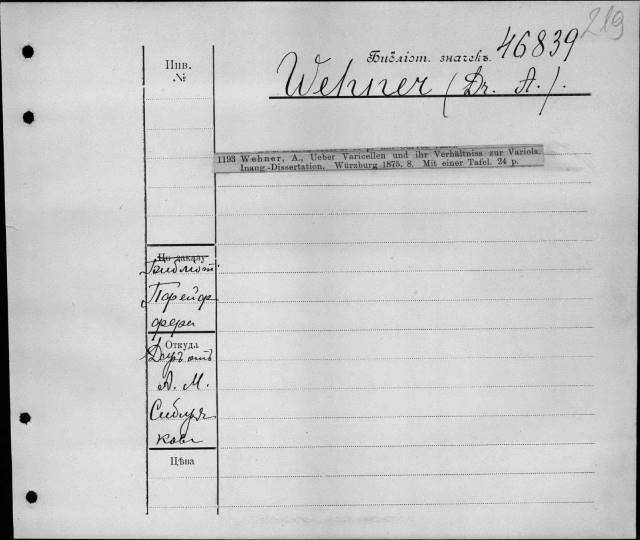 219
Инв.
№
Библіот. значекъ. 46839
Wehner (Dr. A.).
1193 Wehner, A., Ueber Varicellen und ihr Verhältniss zur Variola.
Inaug.-Dissertation. Würzburg 1875. 8. Mit einer Tafel. 24 p.
По заказу
Библіот.
Порейор
фера
Откуда
Даръ отъ
А. М.
Сибиря
кова
Цѣна